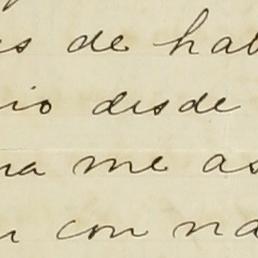 s de hab
io desde
na me as
n con na